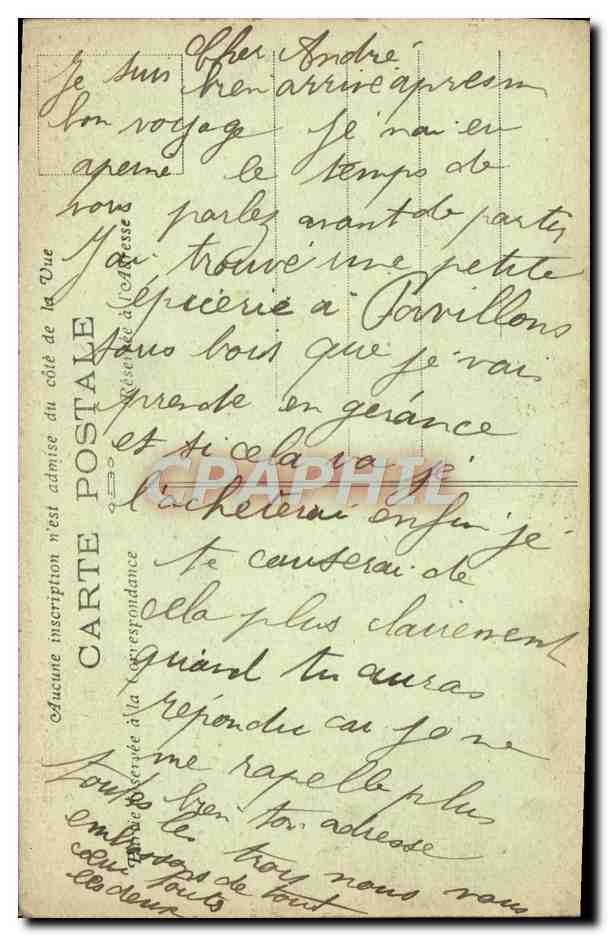 Cher André
Je suis bien arrivé apres un
bon voyage je nai eu
aperne le temps de
vous parlez avant de partir
J'ai trouvé une petite
épicerie a Pavillons
sous bois que je vais
prende en gérance
et si cela va je
l'acheterai enfin je
te causerai de
cela plus clairement
quand tu auras
répondu car je ne
me rapelle plus
bien ton adresse
toutes les troy nous vous
embrassons de tout
cœur touts
les deux
Aucune inscription n'est admise du côté de la Vue
CARTE POSTALE
Réservée à l'Adresse
Partie réservée à la Correspondance
CPAPHIL